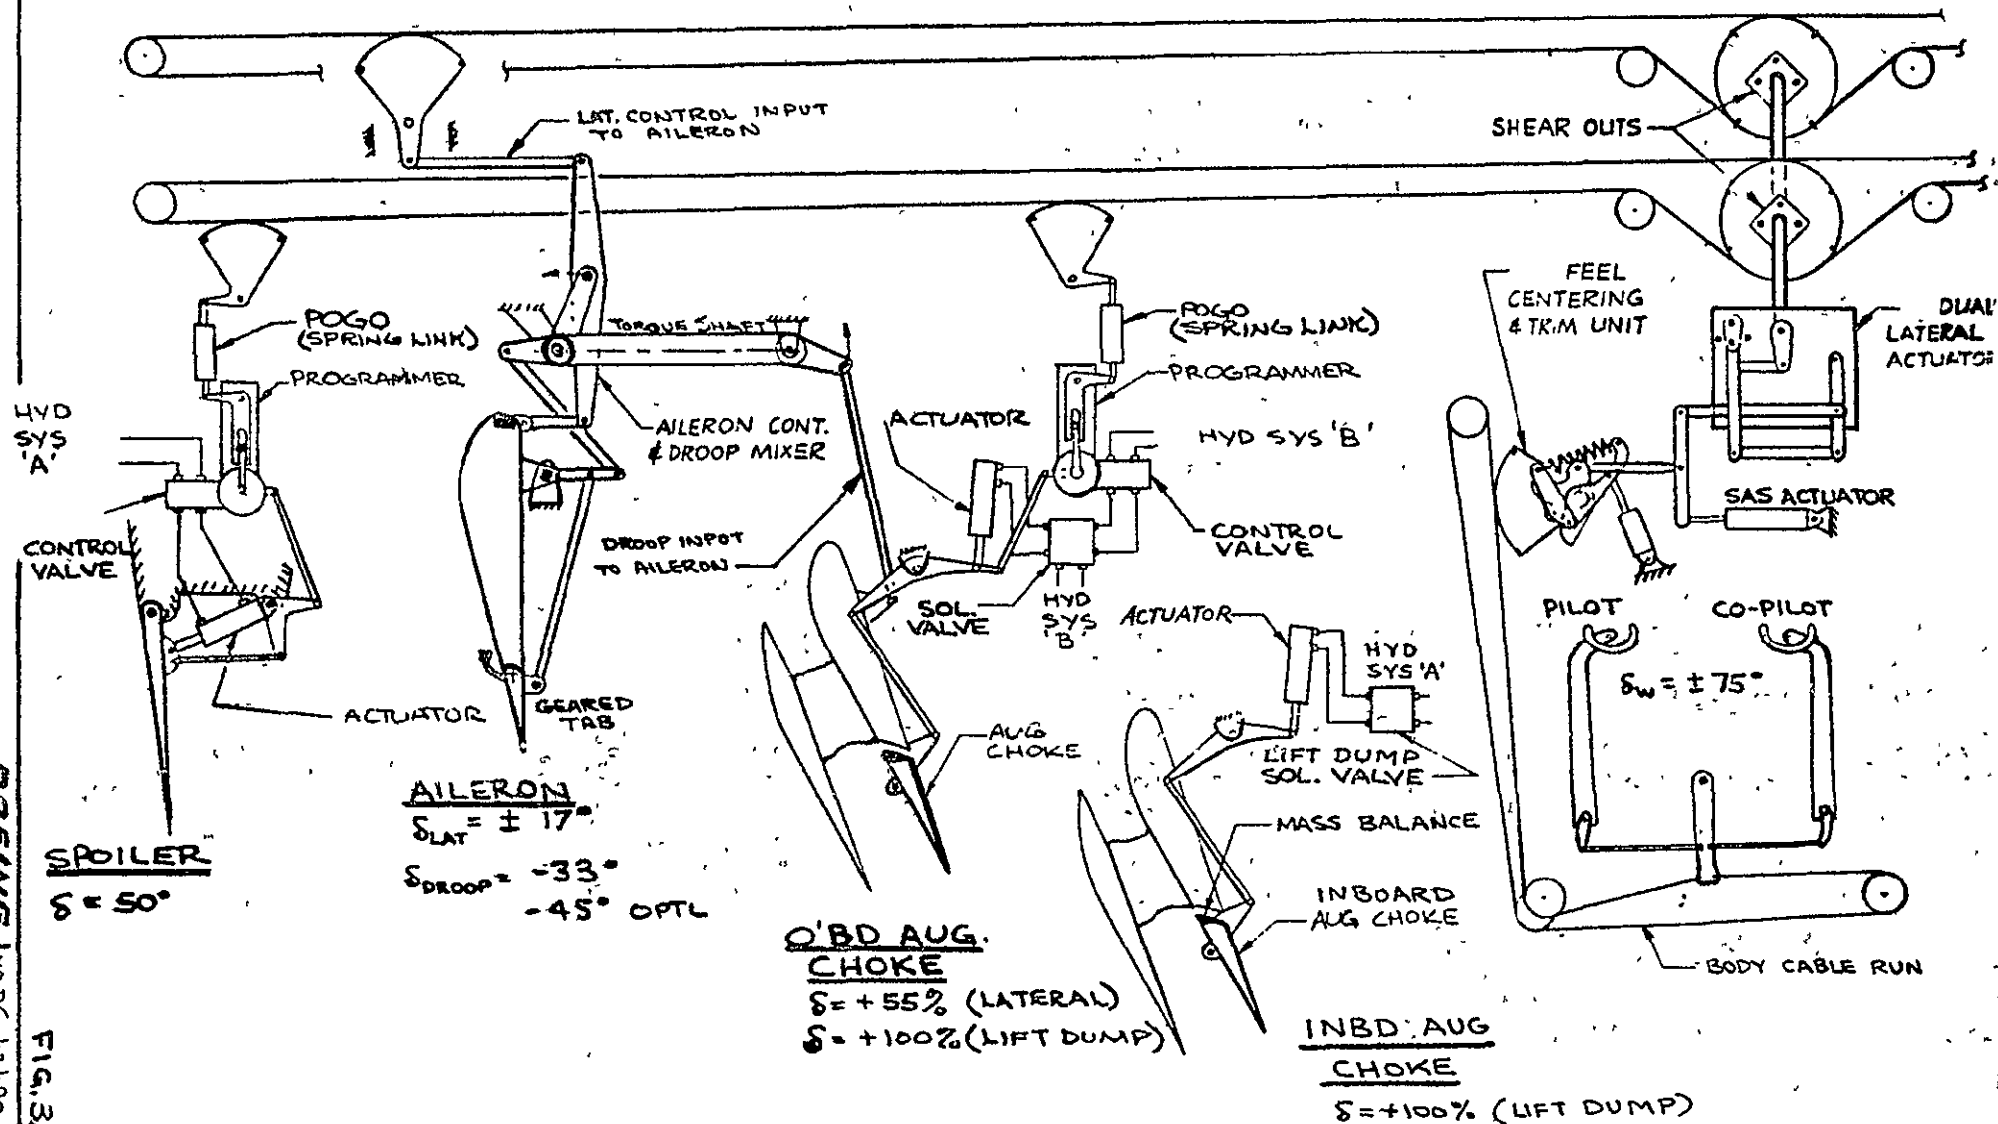 LAT. CONTROL INPUT
TO AILERON
SHEAR OUTS
POGO
(SPRING LINK)
PROGRAMMER
HYD
SYS
'A'
CONTROL
VALVE
ACTUATOR
SPOILER
δ = 50°
TORQUE SHAFT
AILERON CONT.
& DROOP MIXER
DROOP INPUT
TO AILERON
GEARED
TAB
AILERON
δLAT = ± 17°
δDROOP = -33°
-45° OPTL
POGO
(SPRING LINK)
PROGRAMMER
ACTUATOR
HYD SYS 'B'
CONTROL
VALVE
SOL.
VALVE
HYD
SYS
'B'
AUG
CHOKE
O'BD AUG.
CHOKE
δ = +55% (LATERAL)
δ = +100% (LIFT DUMP)
ACTUATOR
HYD
SYS 'A'
LIFT DUMP
SOL. VALVE
MASS BALANCE
INBOARD
AUG CHOKE
INBD. AUG
CHOKE
δ = +100% (LIFT DUMP)
FEEL
CENTERING
& TRIM UNIT
DUAL
LATERAL
SAS ACTUATOR
PILOT
CO-PILOT
δw = ± 75°
BODY CABLE RUN
FIG. 3